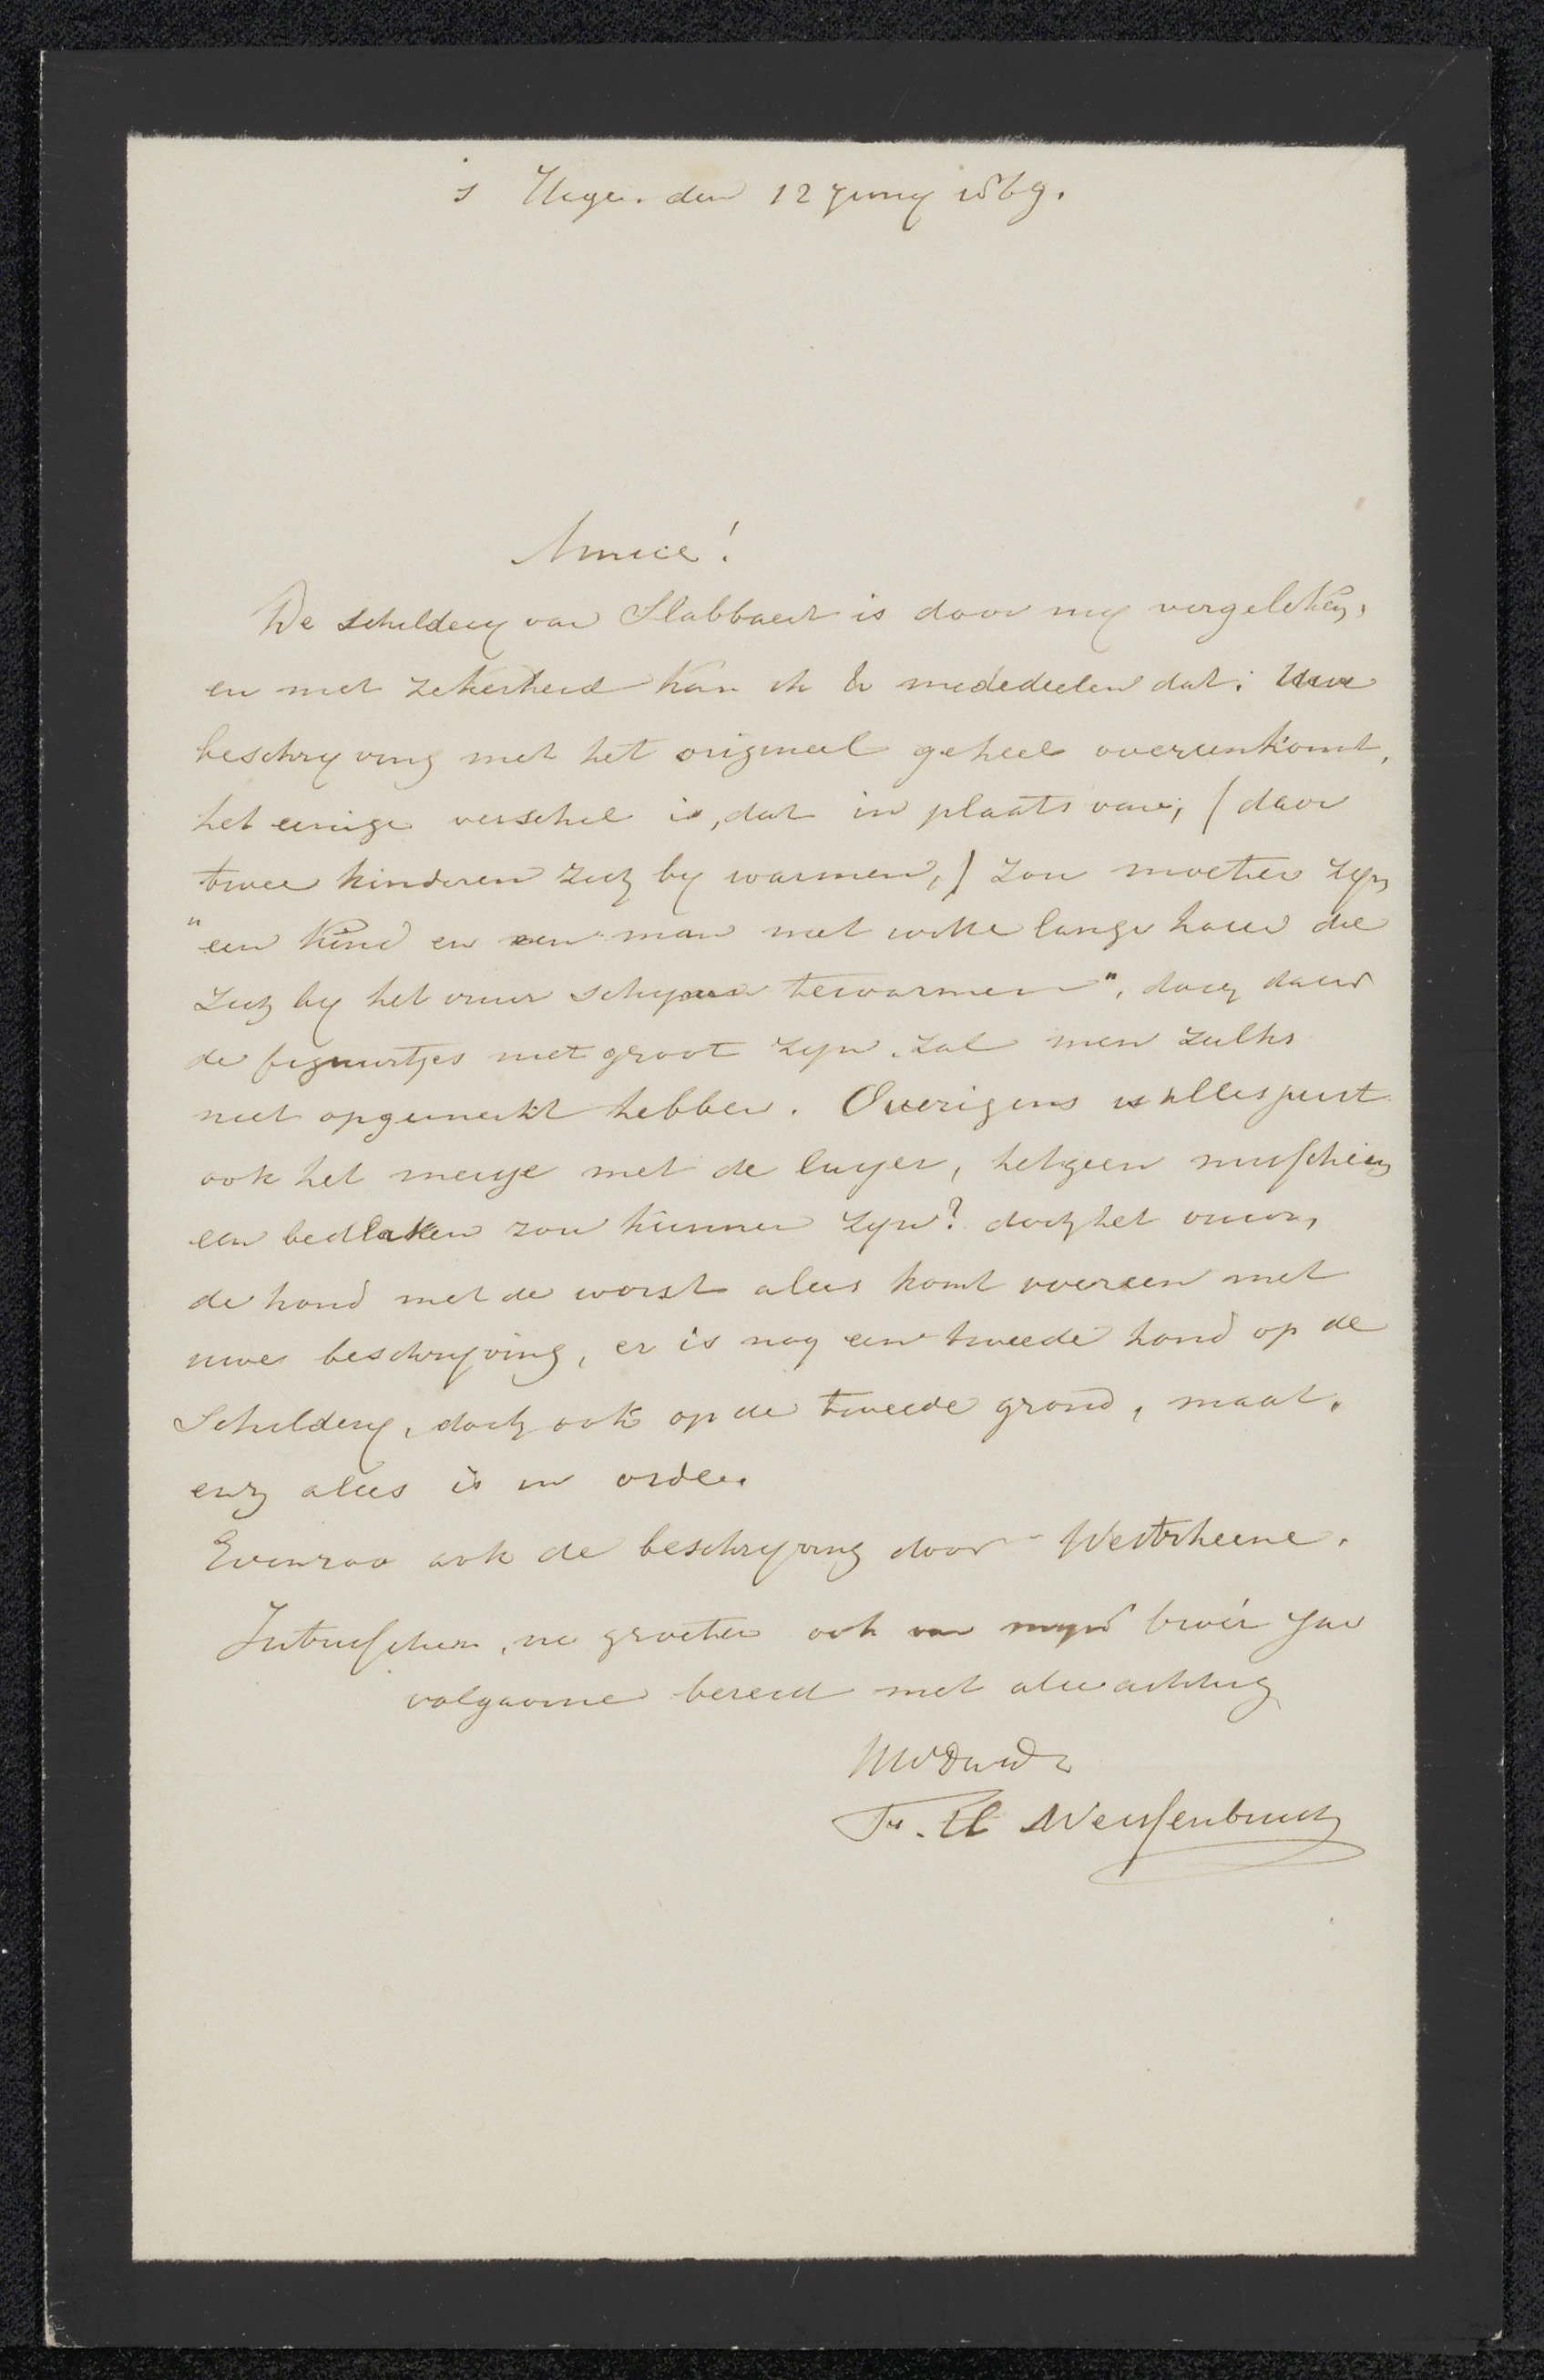 s Hage. den 12 Juny 1869.
Amice!
De schildery van Slabbaert is door my vergeleken,
en met zekerheid kan ik U mededeelen dat: Uwe
beschryving met het origineel geheel overeenkomt,
het eenige verschil is, dat in plaats van; (daar
twee kinderen zich by warmen,) zou moeten zyn
"een kind en een man met witte lange haren die
zich by het vuur schynen te warmen", doch daar
de figuurtjes niet groot zyn. zal men zulks
niet opgemerkt hebben. Overigens is alles juist
ook het meisje met de luyer, hetgeen misschien
een bedlaken zou kunnen zyn? doch het vuur,
de hond met de worst alles komt overeen met
uwe beschryving, er is nog een tweede hond op de
Schildery, doch ook op de tweede grond, maat.
enz alles is in orde.
Evenzoo ook de beschryving door Westrheene.
Intusschen, na groeten ook van myn broêr Jan
volgaarne bereid met alle achting
UWDwDr
Fr. H Weissenbruch